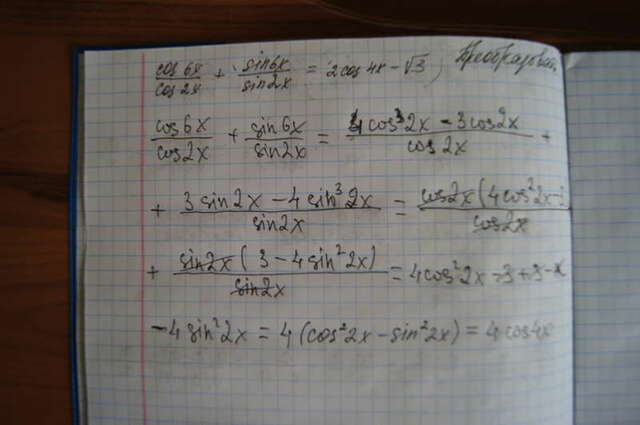 cos 6x / cos 2x + sin 6x / sin 2x = 2 cos 4x - √3, Преобразован.
cos 6x / cos 2x + sin 6x / sin 2x = 4 cos³ 2x - 3 cos 2x / cos 2x +
+ 3 sin 2x - 4 sin³ 2x / sin 2x = cos 2x (4 cos² 2x - 3 / cos 2x
+ sin 2x (3 - 4 sin² 2x) / sin 2x = 4 cos² 2x - 3 + 3 -
- 4 sin² 2x = 4 (cos² 2x - sin² 2x) = 4 cos 4x